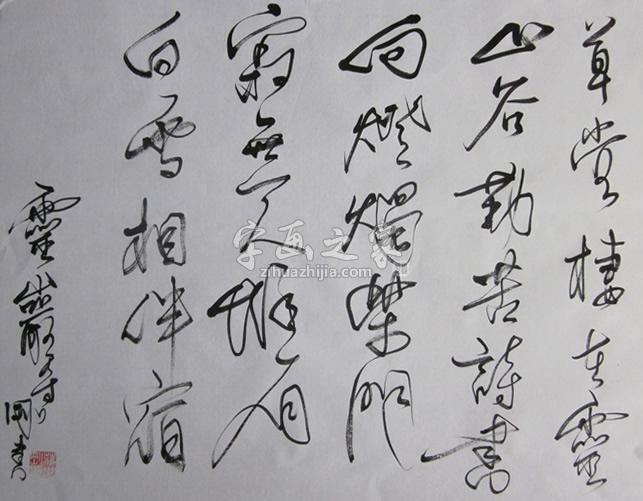 草堂棲在靈
山谷勤苦詩書
向燈燭柴門
寂無人惟有
白雪相伴宿
靈巖
字画之家
zihuazhijia.com